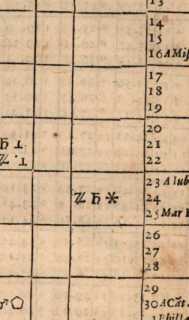 13
14
15
16 A Miſ
17
18
19
20
21
22
23 A lub
♃ ♄ ⚹ 24
25 Mar
26
27
28
29
30 A Cat
1